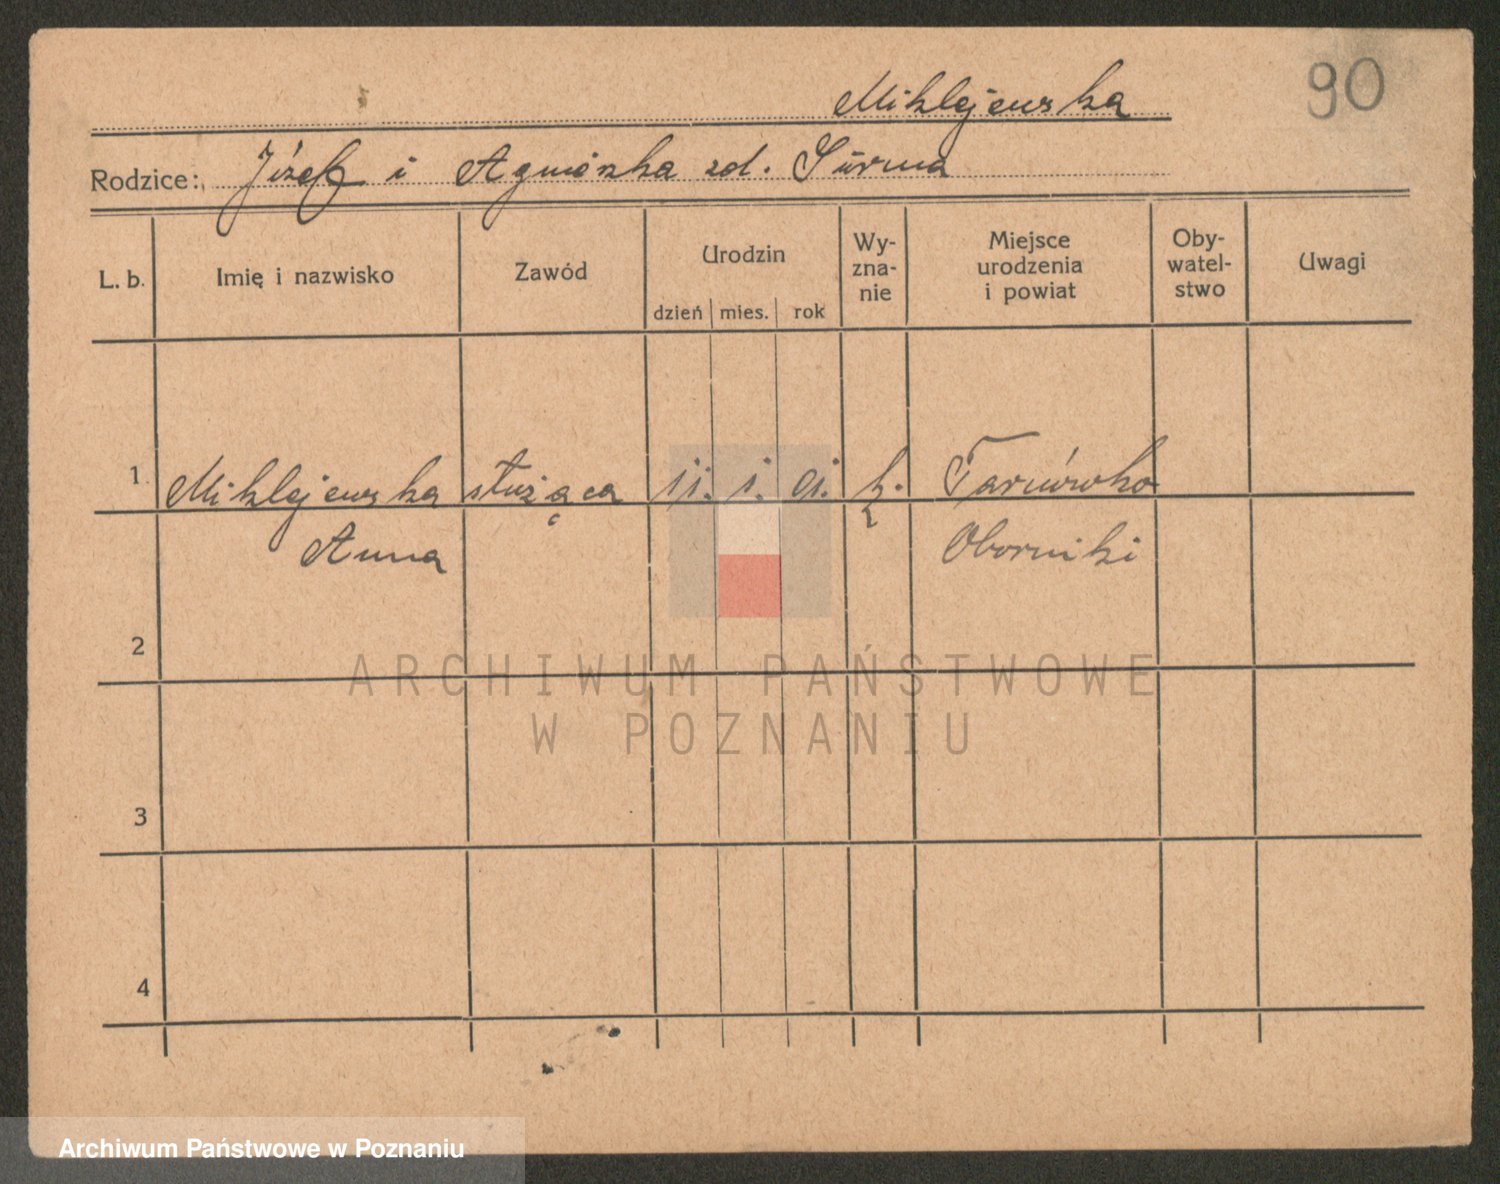 Miklejewska
90
Rodzice: Józef i Agnieszka zd. Surma
L. b. Imię i nazwisko Zawód Urodzin dzień mies. rok Wy-zna-nie Miejsce urodzenia i powiat Oby-watel-stwo Uwagi
1 Miklejewska służąca 11. 1. 01. k. Tarnówko
Anna Oborniki
2
ARCHIWUM PAŃSTWOWE
W POZNANIU
3
4
Archiwum Państwowe w Poznaniu